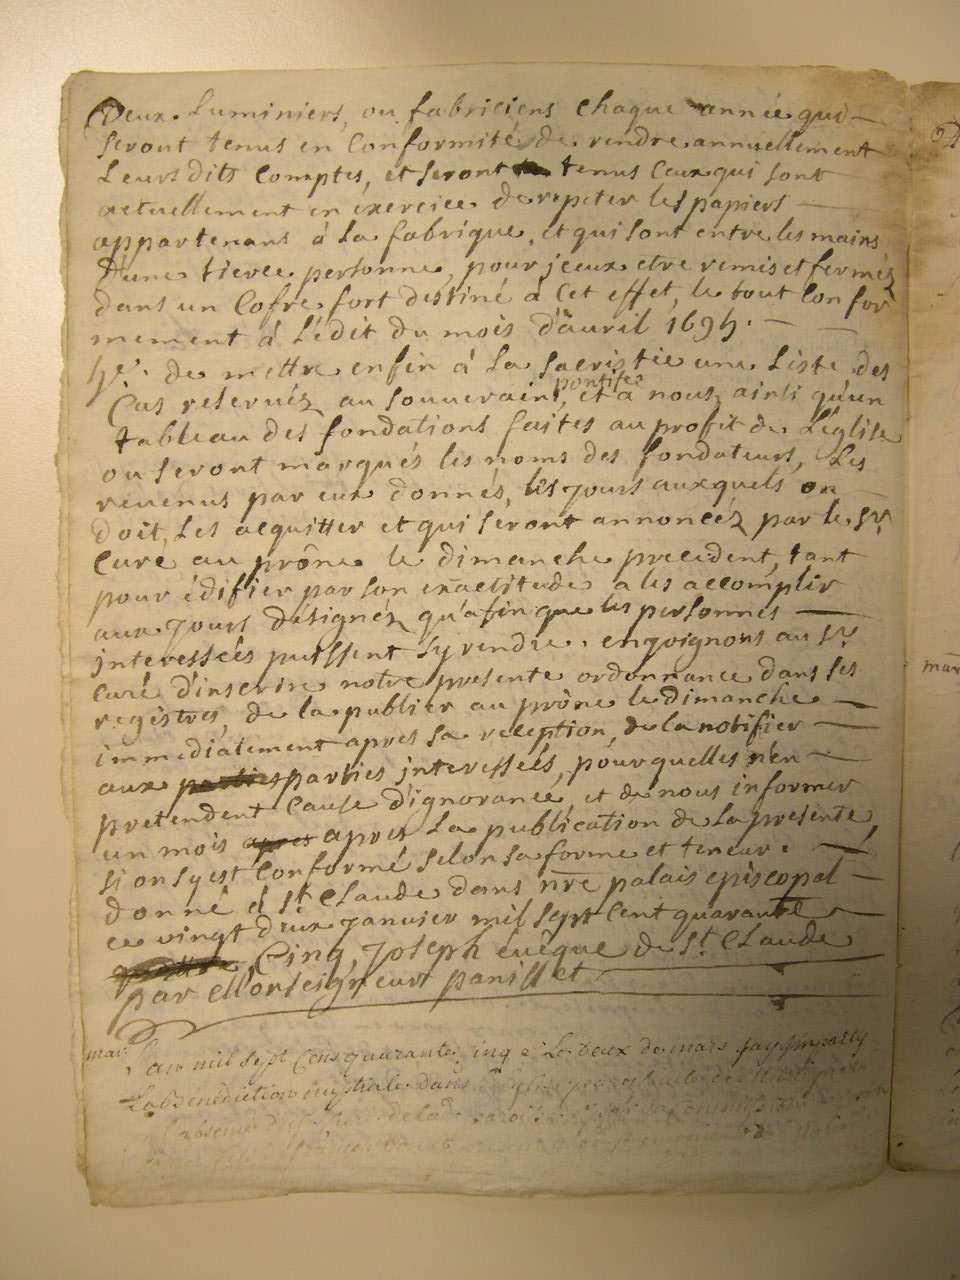 Deux Luminiers, ou fabriciens chaque année qui
seront tenus en Conformité de rendre annuellement
Leursdits Comptes, et seront tenus Ceux qui sont
actuellement en exercice de repeter les papiers
appartenans à la fabrique, et qui sont entre les mains
d'une tierce personne, pour jceux etre remis et fermés
dans un Cofre fort destiné à Cet effet, le tout Confor
mement à L'édit du mois d'avril 1695.
5e. de mettre enfin à la sacristie une Liste des
Cas reservéz au souverain pontife, et à nous, ainsi qu'un
tableau des fondations faites au profit de L'église
ou seront marqués les noms des fondateurs, Les
revenus par eux donnés, les jours auxquels on
doit Les acquitter et qui seront annoncéz par le sr.
Curé au prône le dimanche precedent, tant
pour édifier par son exactitude a les accomplir
aux jours désignéz qu'afin que les personnes
jnteressées puissent sy rendre. enjoignons au sr.
Curé d'inscrire notre presente ordonnance dans ses
registres, de la publier au prône le dimanche
immediatement apres sa reception, de la notifier
aux parties parties jnteressées, pourquelles n'en
pretendent Cause d'ignorance, et de nous informer
un mois apres apres La publication de la presente,
si on sy est Conformé selon sa forme et teneur.
donné à st. Claude dans nre palais episcopal
ce vingt deux janvier mil sept Cent quarante
Cinq, Joseph évêque de st. Claude
par Monseigneur panisset
mar.
Lan mil sept Cens quarante cinq Le deux de mars jay
La benediction nuptiale dans